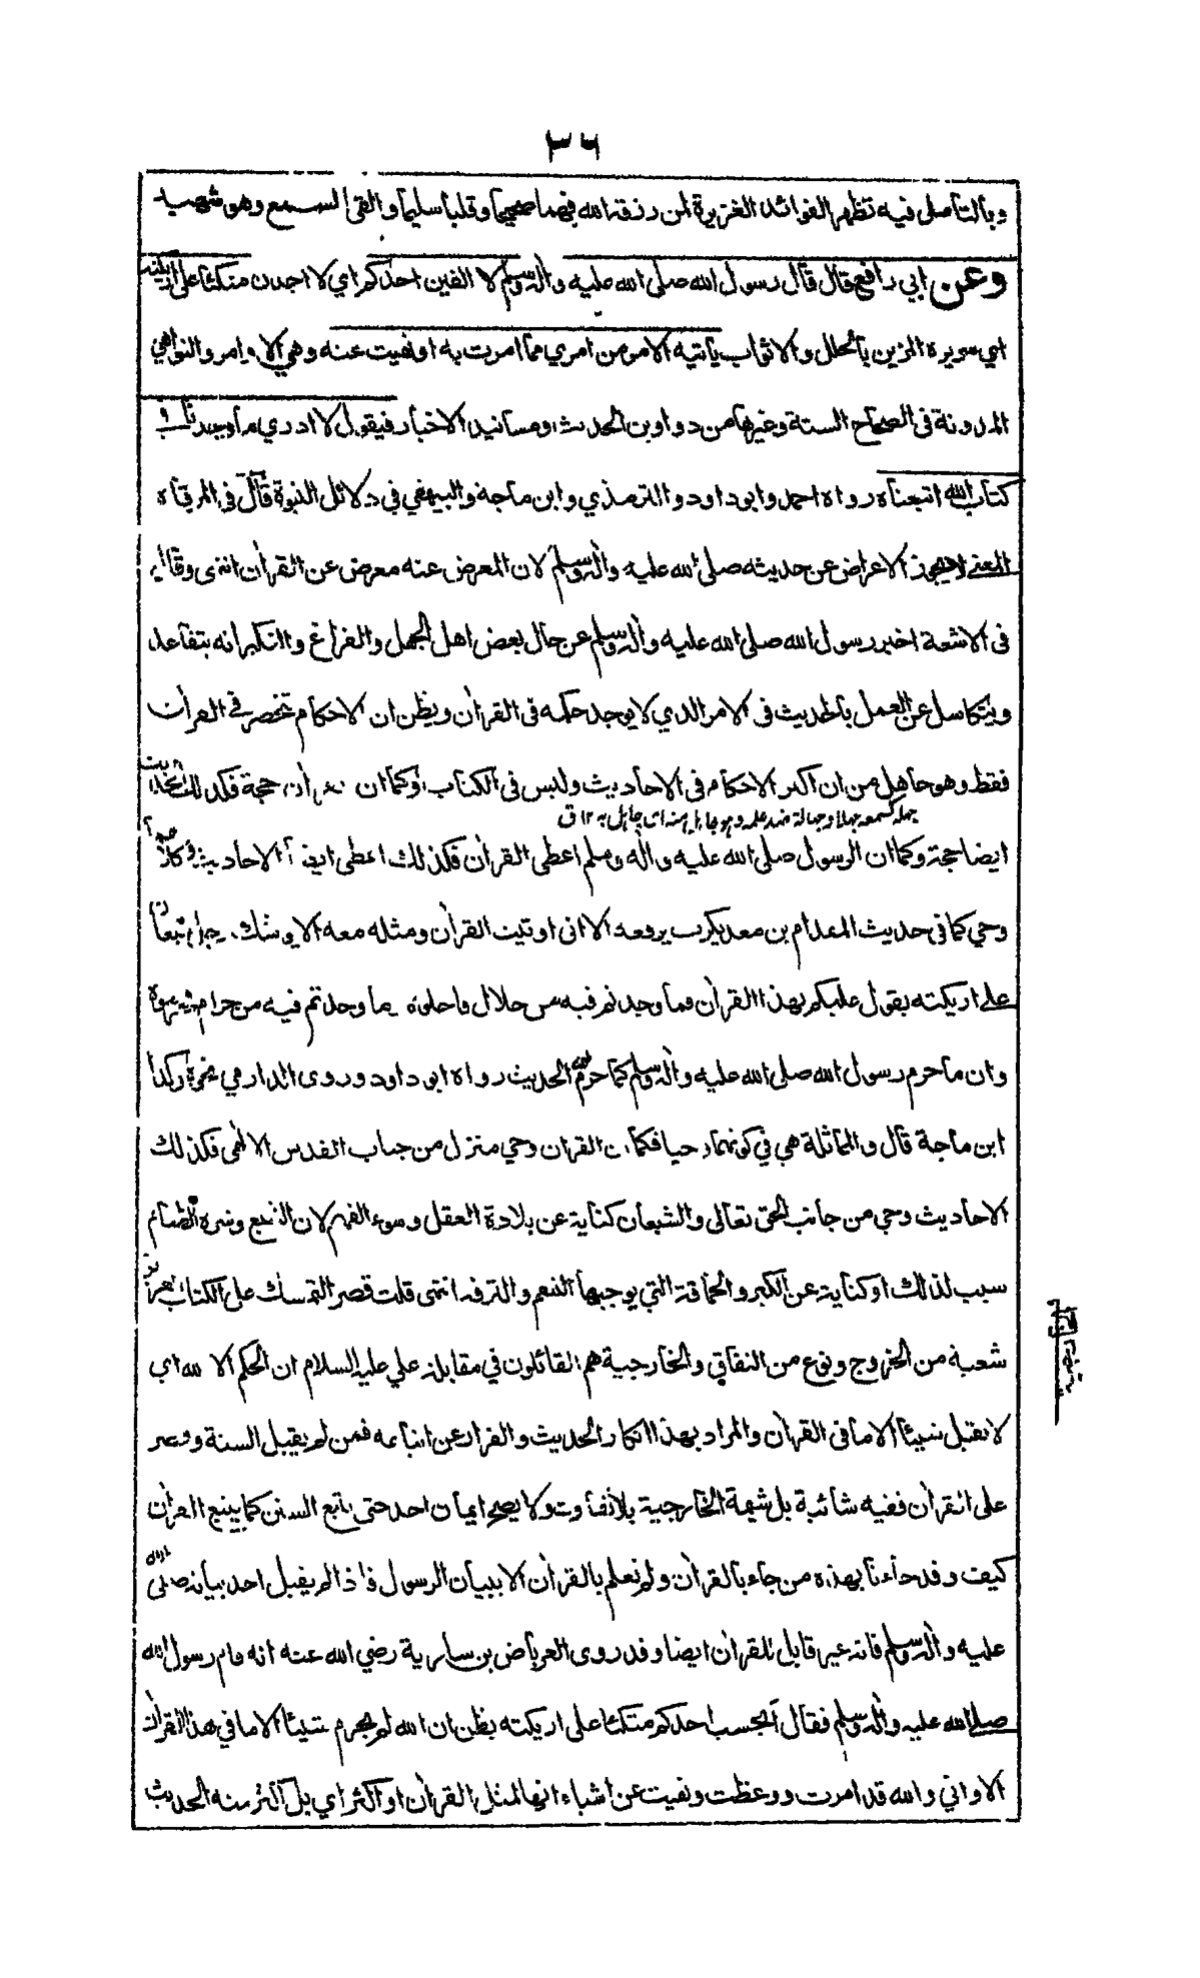 ٣٦
وبالتأمل فيه تظهر الفوائد الغزيرة لمن رزقه الله فهما صحيحا وقلبا سليما والقى السمع وهو شهيد
وعن ابي رافع قال قال رسول الله صلى الله عليه واٰله وسلم لا الفين احدكم اي لا اجدن متكئا على اريكته
اي سريره المزين بالحلل والاثواب يأتيه الامر من امري مما امرت به او نهيت عنه وهي الاوامر والنواهي
المدونة في الصحاح الستة وغيرها من دواوين الحديث ومسانيد الاخبار فيقول لا ادري ما وجدنا في
كتاب الله اتبعناه رواه احمد وابو داود والترمذي وابن ماجة والبيهقي في دلائل النبوة قال في المرقاة
المعنى لا يجوز الاعراض عن حديثه صلى الله عليه واٰله وسلم لان المعرض عنه معرض عن القراٰن انتهى وقال
في الاشعة اخبر رسول الله صلى الله عليه واٰله وسلم عن حال بعض اهل الجهل والفراغ والتكبر انه يتقاعد
ويتكاسل عن العمل بالحديث في الامر الذي لا يوجد حكمه في القراٰن ويظن ان الاحكام تنحصر في القراٰن
فقط وهو جاهل من ان اكثر الاحكام في الاحاديث وليس في الكتاب وكما ان القراٰن حجة فكذلك الحديث
جهله كسمعه جهلا وجهالة ضد علمه وهو جاهل منه اى جاهل به ١٢ ق
ايضا حجة وكما ان الرسول صلى الله عليه واٰله وسلم اعطى القراٰن فكذلك اعطى ايضا الاحاديث وكلاهما
وحي كما في حديث المقدام بن معديكرب يرفعه الا اني اوتيت القراٰن ومثله معه الا يوشك رجل شبعان
على اريكته يقول عليكم بهذا القراٰن فما وجدتم فيه من حلال فاحلوه وما وجدتم فيه من حرام فحرموه
وان ما حرم رسول الله صلى الله عليه واٰله وسلم كما حرم الله الحديث رواه ابو داود وروى الدارمي نحوه وكذا
ابن ماجة قال والمماثلة هي في كونهما وحيا فكما ان القراٰن وحي منزل من جناب القدس الالٰهي فكذلك
الاحاديث وحي من جانب الحق تعالى والشبعان كناية عن بلادة العقل وسوء الفهم لان الشبع وشره الطعام
سبب لذالك او كناية عن الكبر والحماقة التي يوجبها التنعم والترفه انتهى قلت قصر التمسك على الكتاب
شعبة من الخروج ونوع من النفاق والخارجية هم القائلون في مقابلة علي عليه السلام ان الحكم الا لله اي
لا نقبل شيئا الا ما في القراٰن والمراد بهذا انكار الحديث والفرار عن اتباعه فمن لم يقبل السنة وقصر
على القراٰن ففيه شائبة بل شيمة الخارجية بلا تفاوت ولا يصح ايمان احد حتى يتبع السنن كما يتبع القراٰن
كيف وقد جاءنا بهذه من جاء بالقراٰن ولم نعلم بالقراٰن الا ببيان الرسول فاذا لم يقبل احد بيانه صلى الله
عليه واٰله وسلم فانه غير قابل للقراٰن ايضا وقد روى العرباض بن سارية رضي الله عنه انه قام رسول الله
صلى الله عليه واٰله وسلم فقال أيحسب احدكم متكئا على اريكته يظن ان الله لم يحرم شيئا الا ما في هذا القراٰن
الا واني والله قد امرت ووعظت ونهيت عن اشياء انها لمثل القراٰن او اكثر اي بل اكثر منه الحديث